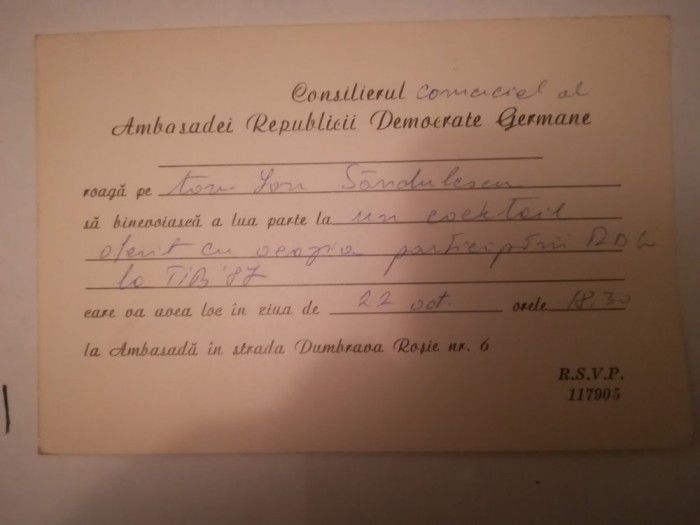 Consilierul comercial al
Ambasadei Republicii Democrate Germane
roagă pe tov. Ion Săndulescu
să binevoiască a lua parte la un cocktail
oferit cu ocazia participării R.D.G.
la TIB'87
care va avea loc în ziua de 22 oct. orele 18.30
la Ambasadă în strada Dumbrava Roşie nr. 6
R.S.V.P.
117905